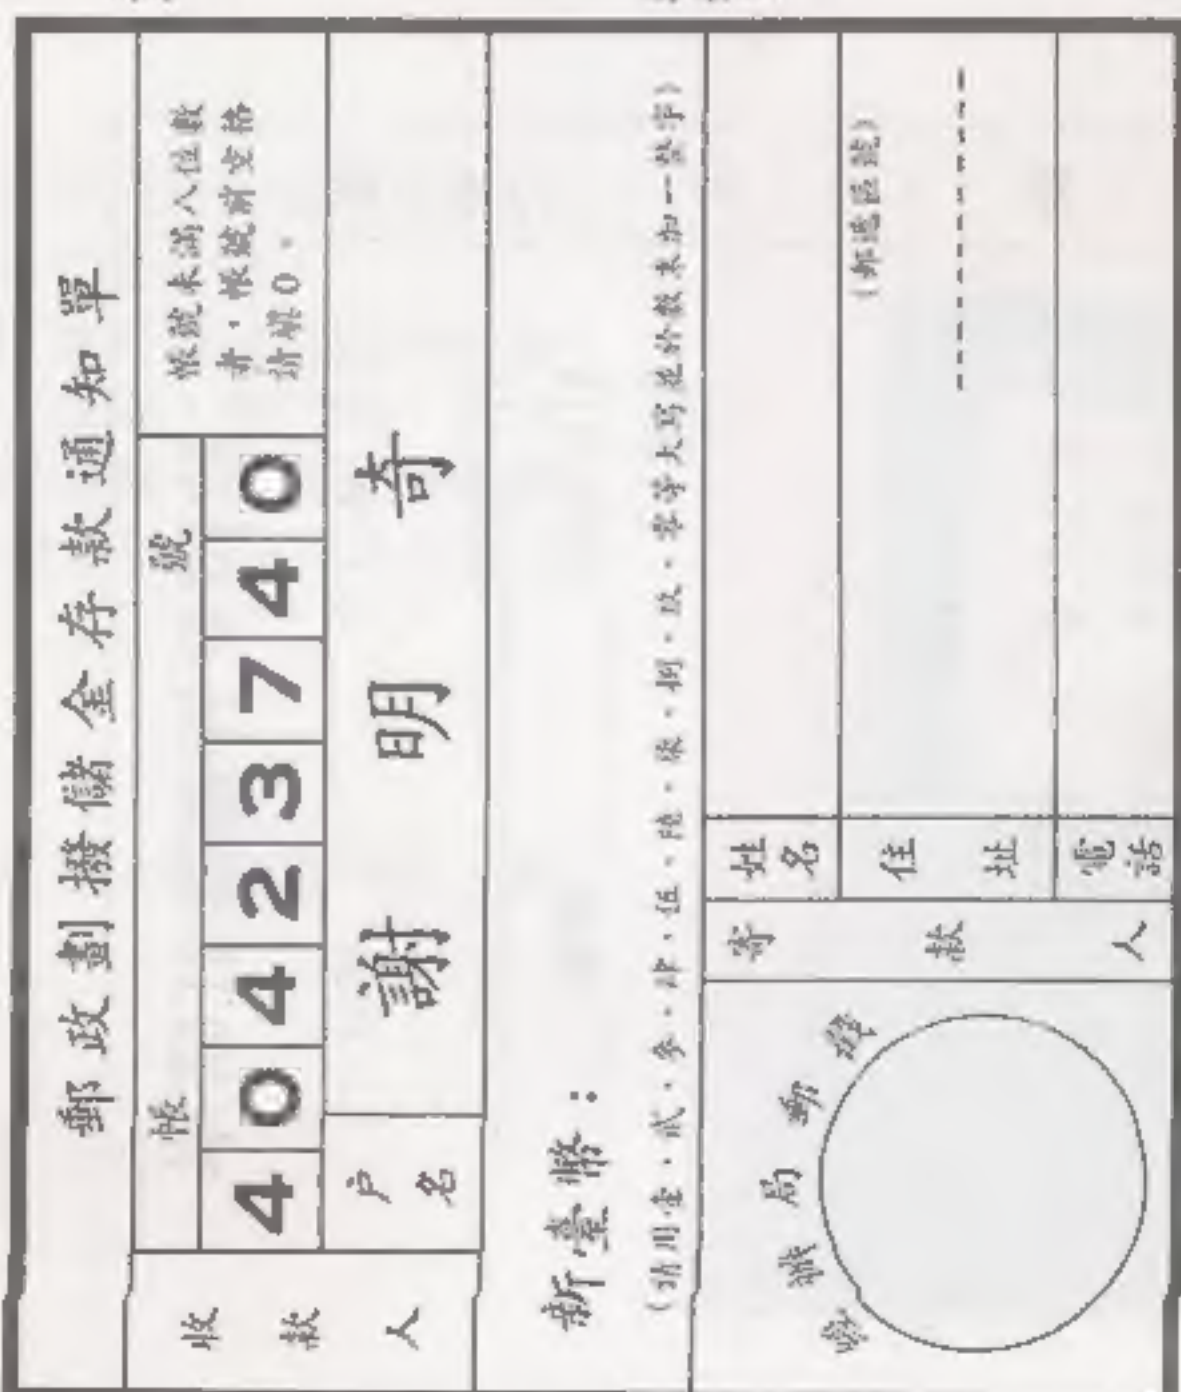 郵政劃撥儲金存款通知單
收款人
帳號
40423740
帳號未滿八位數
者,帳號前空格
請填0。
戶名
謝明奇
新臺幣:
(請用壹、貳、參、肆、伍、陸、柒、捌、玖、零等大寫並於數末加一整字)
寄款人
姓名
住址
(郵遞區號)
電話
局郵戳